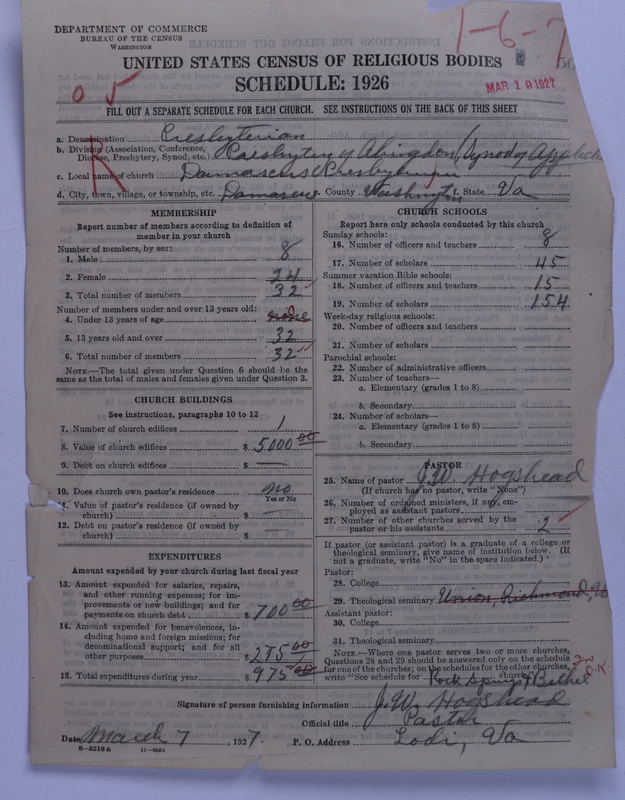 DEPARTMENT OF COMMERCE
BUREAU OF THE CENSUS
WASHINGTON
1-6-7
UNITED STATES CENSUS OF RELIGIOUS BODIES
SCHEDULE: 1926
MAR 19 1927
FILL OUT A SEPARATE SCHEDULE FOR EACH CHURCH. SEE INSTRUCTIONS ON THE BACK OF THIS SHEET
a. Denomination Presbyterian
b. Division (Association, Conference, Diocese, Presbytery, Synod, etc.) Presbytery of Abingdon (Synod of Appalachia
c. Local name of church Damascus Presbyterian
d. City, town, village, or township, etc. Damascus County Washington f. State Va
MEMBERSHIP
Report number of members according to definition of member in your church
Number of members, by sex:
1. Male 8
2. Female 24
3. Total number of members 32
Number of members under and over 13 years old:
4. Under 13 years of age none
5. 13 years old and over 32
6. Total number of members 32
NOTE.—The total given under Question 6 should be the same as the total of males and females given under Question 3.
CHURCH BUILDINGS
See instructions, paragraphs 10 to 12
7. Number of church edifices 1
8. Value of church edifices $ 5000 00
9. Debt on church edifices $ —
10. Does church own pastor's residence no
Yes or No
1. Value of pastor's residence (if owned by church) $ —
12. Debt on pastor's residence (if owned by church) $ —
EXPENDITURES
Amount expended by your church during last fiscal year
13. Amount expended for salaries, repairs, and other running expenses; for improvements or new buildings; and for payments on church debt $ 700 00
14. Amount expended for benevolences, including home and foreign missions; for denominational support; and for all other purposes $ 275 00
15. Total expenditures during year $ 975 00
CHURCH SCHOOLS
Report here only schools conducted by this church
Sunday schools:
16. Number of officers and teachers 8
17. Number of scholars 45
Summer vacation Bible schools:
18. Number of officers and teachers 15
19. Number of scholars 154
Week-day religious schools:
20. Number of officers and teachers
21. Number of scholars
Parochial schools:
22. Number of administrative officers
23. Number of teachers—
a. Elementary (grades 1 to 8)
b. Secondary
24. Number of scholars—
a. Elementary (grades 1 to 8)
b. Secondary
PASTOR
25. Name of pastor J. W. Hogshead
(If church has no pastor, write "None")
26. Number of ordained ministers, if any, employed as assistant pastors
27. Number of other churches served by the pastor or his assistants 2
If pastor (or assistant pastor) is a graduate of a college or theological seminary, give name of institution below. (If not a graduate, write "No" in the space indicated.)
Pastor:
28. College
29. Theological seminary Union, Richmond, Va
Assistant pastor:
30. College
31. Theological seminary
NOTE.—Where one pastor serves two or more churches, Questions 28 and 29 should be answered only on the schedule for one of the churches; on the schedules for the other churches, write "See schedule for Rock Spring & Bethel church."
O.K.
Signature of person furnishing information J. W. Hogshead
Official title Pastor
Date March 7, 1927. P. O. Address Lodi, Va
8-5518a 11-9684